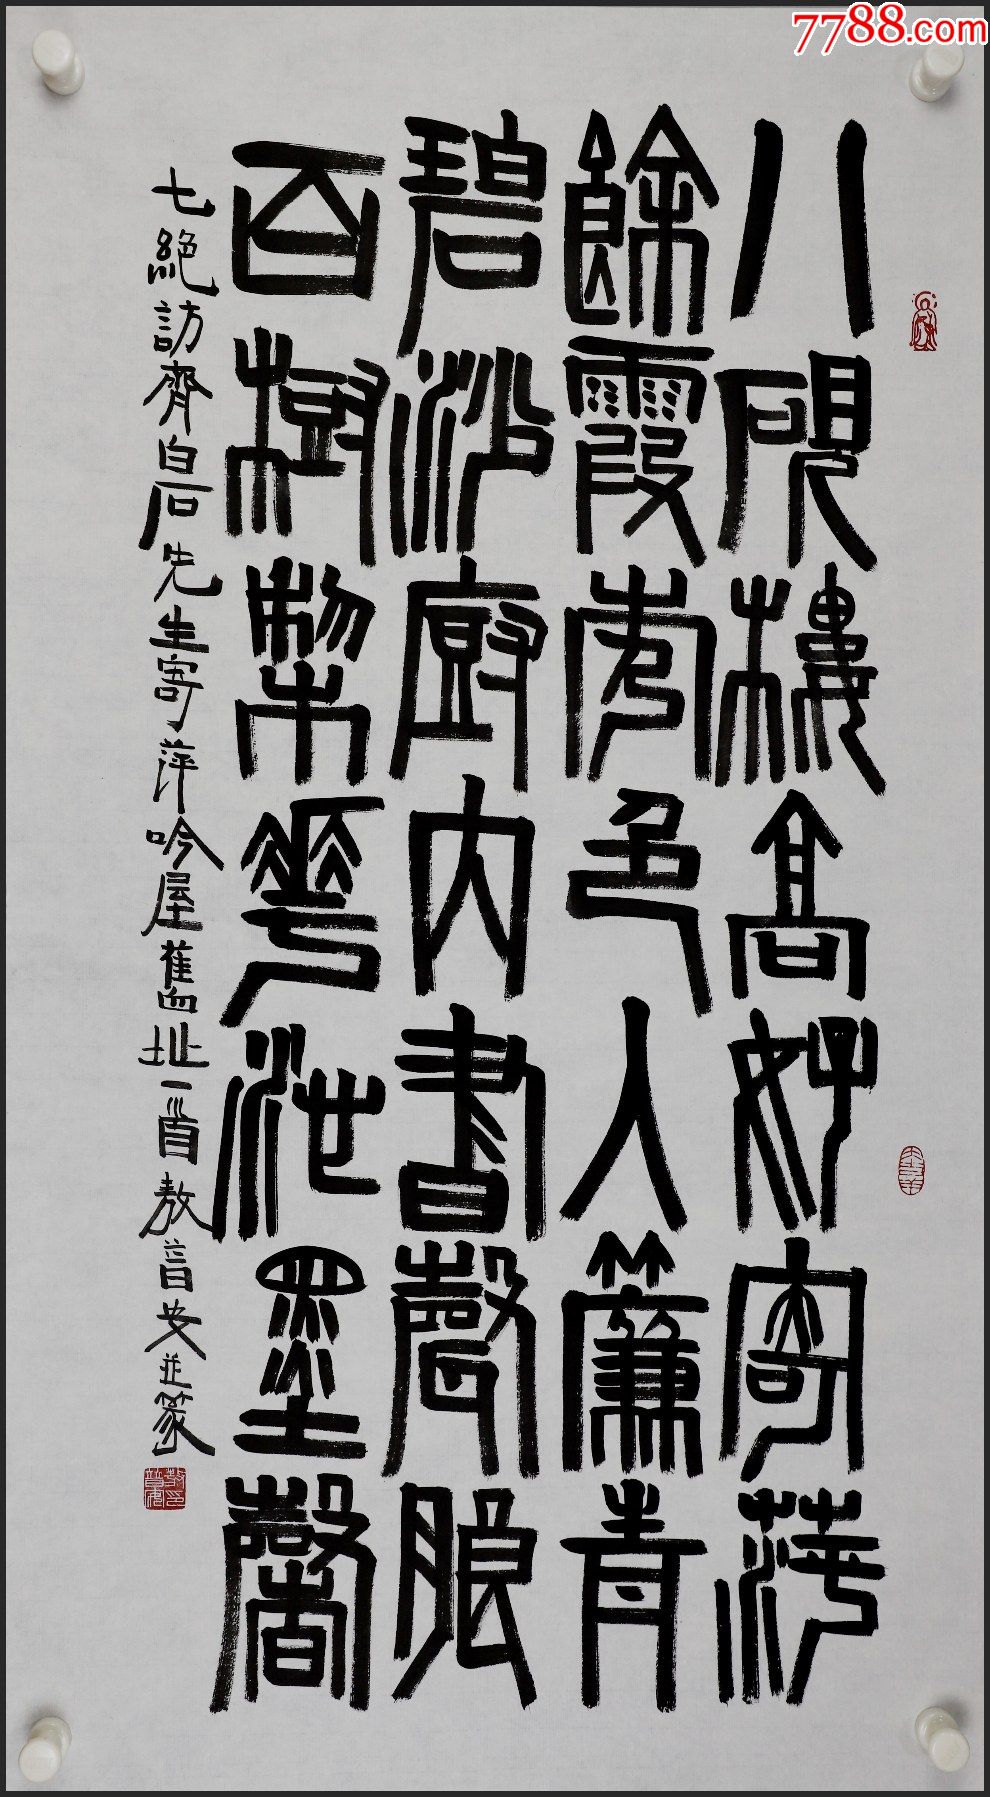 7788.com
八硯樓高好寄萍
餘霞秀色入簾青
碧沙廚內書聲朗
百樹棃花泄墨馨
七絕訪齊白石先生寄萍吟屋舊址一首敖普安並篆